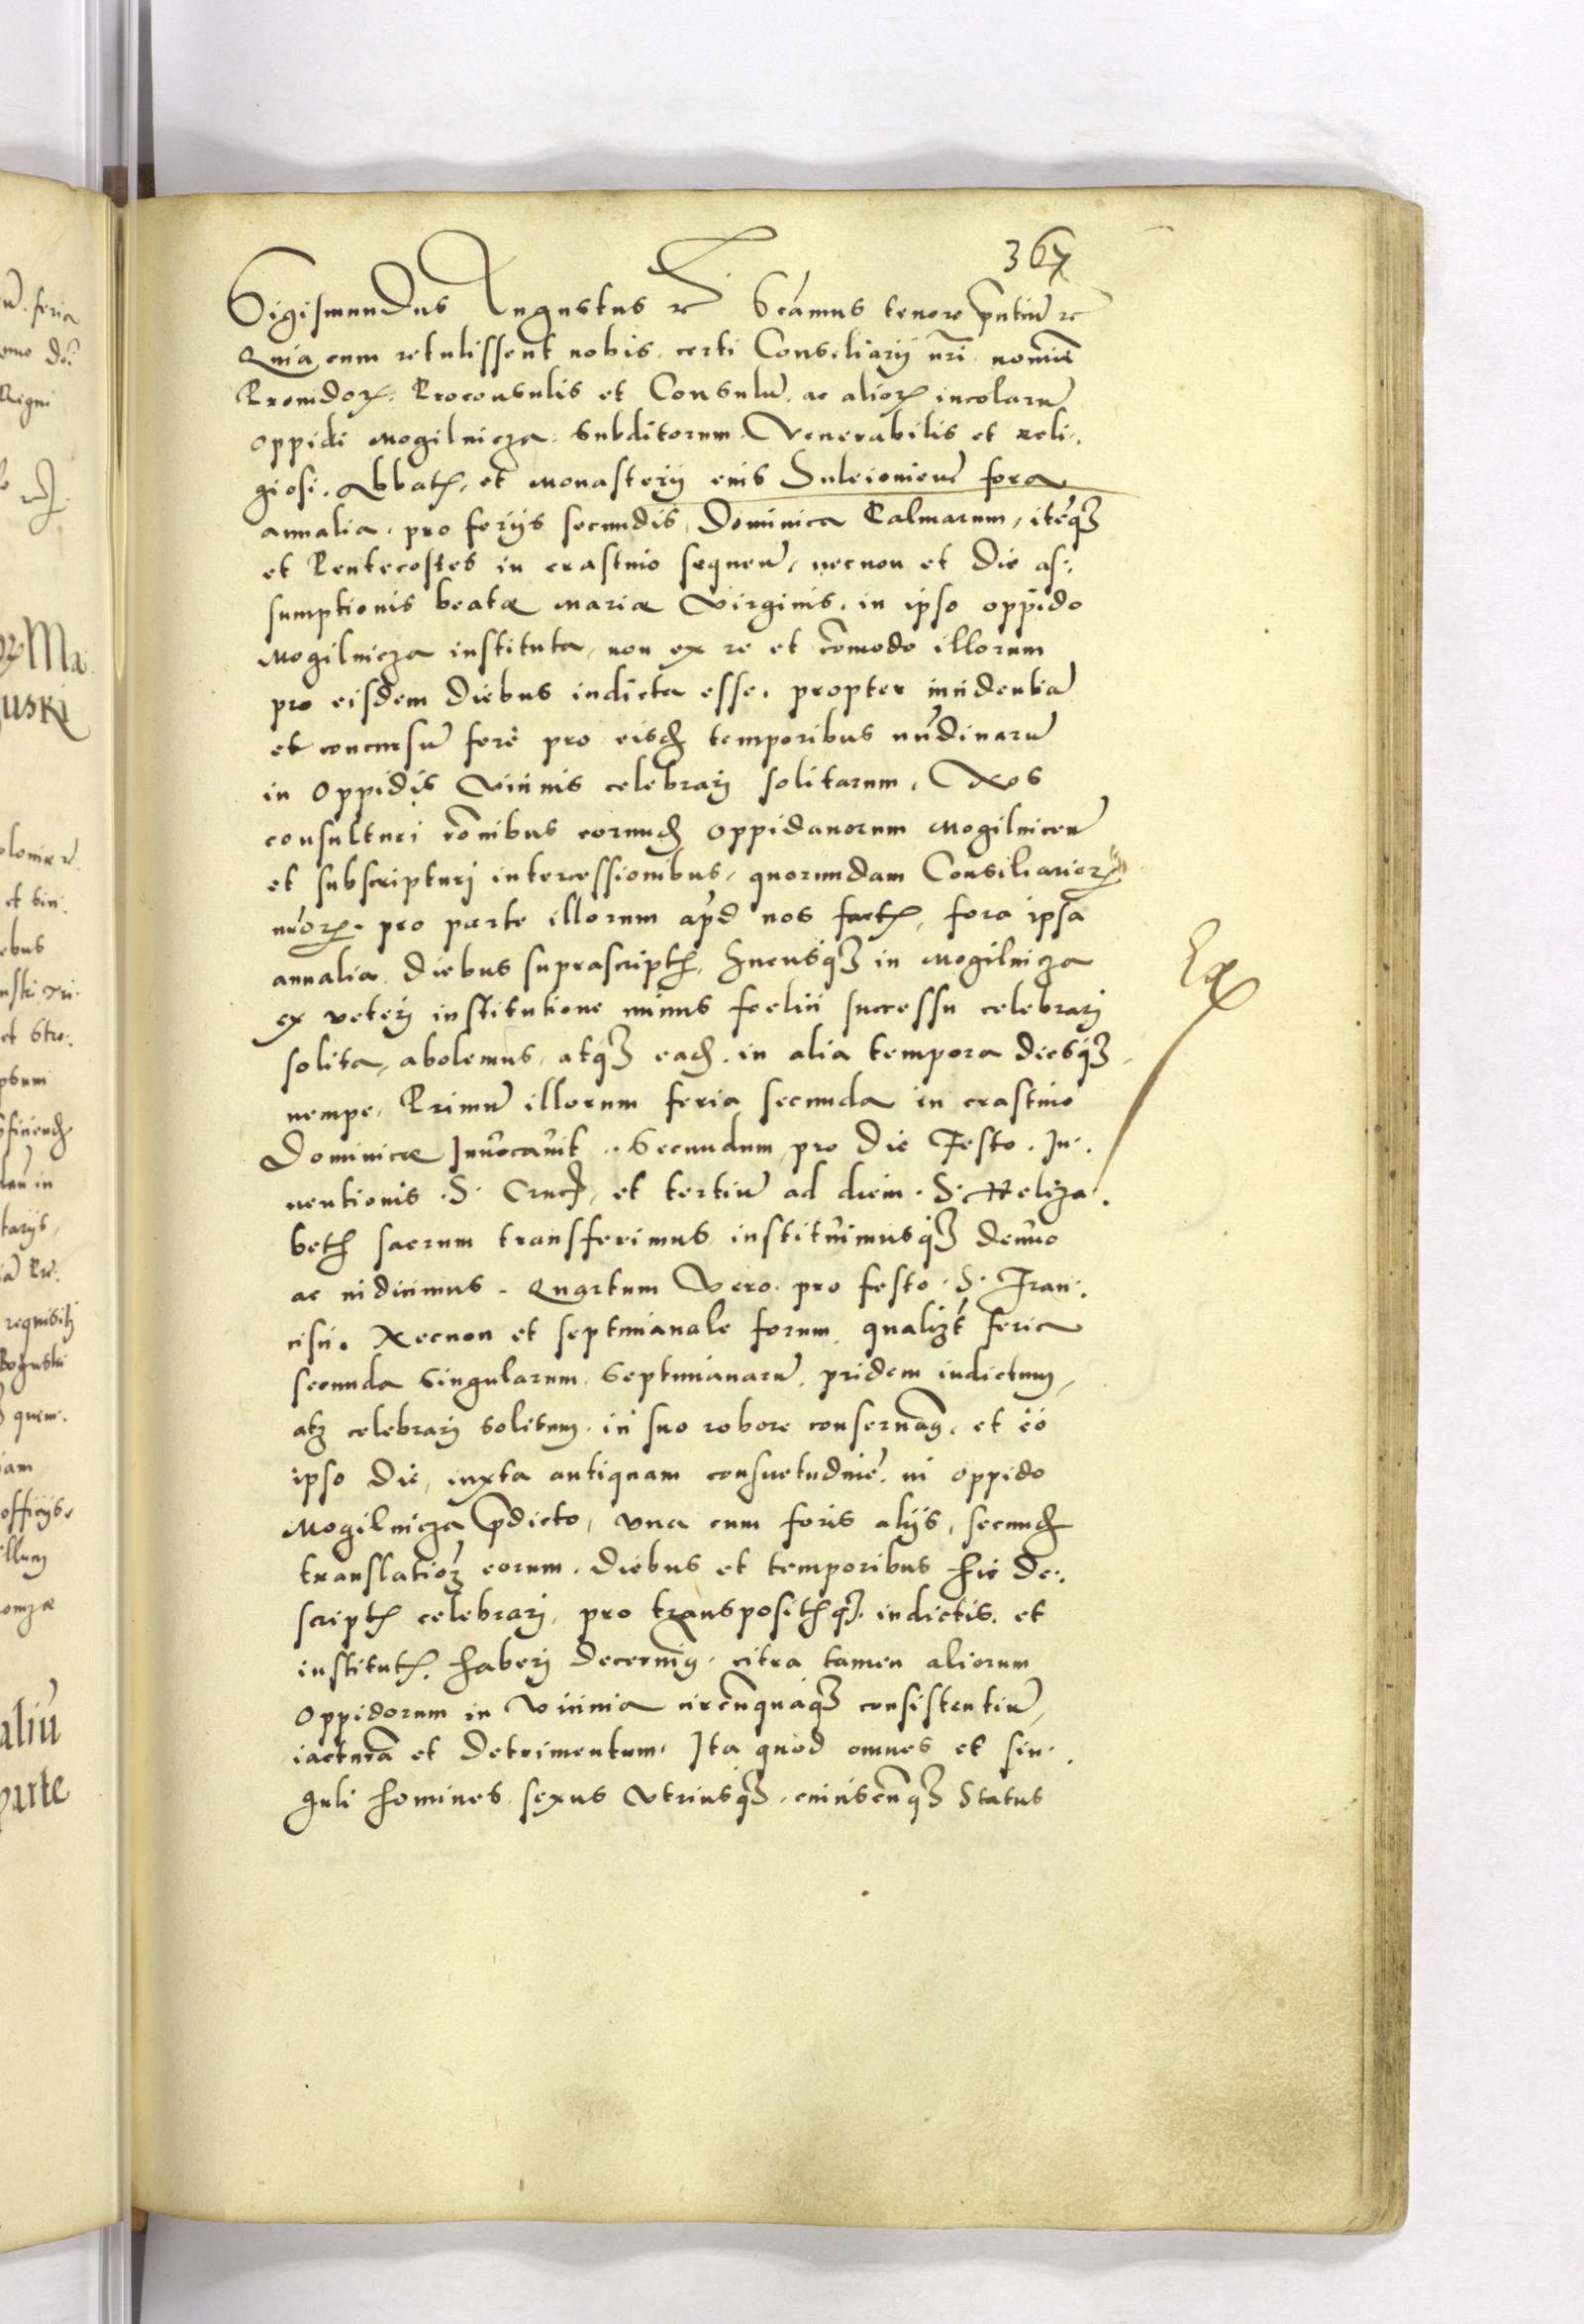 367
Sigismundus Augustus etc Sčamus tenore pñtiũ etc
Quia cum retulissent nobis certi Consiliarij nři nomiẽ
Prouidoꝝ. Proconsulis et Consulũ. ac alioꝝ incolarũ
oppidi Mogilnicza. subditorum Venerabilis et reli.
giosi. Abbatꝭ. et Monasterij eius Suleiouieñ fora
annalia. pro ferijs secundis, Dominica Palmarum, itẽqꝫ
et Pentecostes in crastino sequeñ, necnon et die as.
sumptionis beatæ Mariæ Virginis. in ipso oppido
Mogilnicza instituta, non ex re et cõmodo illorum
pro eisdem diebus indicta esse. propter incidentiã
et concursũ ferè pro eisđ temporibus nũdinarũ
in oppidis vicinis celebrarj solitarum. Nos
consulturi rõnibus eorunđ oppidanorum Mogilniceñ
et subscripturj intercessionibus, quorundam Consiliarioꝝ
nřoꝝ. pro parte illorum apũd nos factꝭ, fora ipsa
annalia diebus suprascriptꝭ, hucusqꝫ in Mogilnicza
ex veterj institutione minus foelici successu celebrarj
solita, abolemus, atqꝫ eađ. in alia tempora diesqꝫ,
nempe, Primũ illorum feria secunda in crastino
Dominicæ Inuocauit. Secundum pro die Festo. In.
uentionis. S. Crucꝭ, et tertiũ ad diem. S. Heliza.
beth sacrum transferimus instituimusqꝫ denuo
ac indicimus. Quartum Vero. pro festo. S. Fran.
cisci. Necnon et septimanale forum, qualizt feria
secunda singularum septimanarũ. pridem indictum,
atqꝫ celebrarj solitum. in suo robore conseruãꝰ. et eo
ipso die, iuxta antiquam consuetudinẽ. in oppido
Mogilnicza p̃dicto, vna cum foris alijs, secunđ
translatioꝫ eorum. diebus et temporibus hic de.
scriptꝭ celebrarj, pro transpositꝭqꝫ. indictis. et
institutꝭ. haberj decernimꝰ. citra tamen aliorum
oppidorum in vicinia circũquaqꝫ consistentiũ,
iacturã et detrimentum. Ita quod omnes et sin.
guli homines sexus vtriusqꝫ, cuiuscũqꝫ status